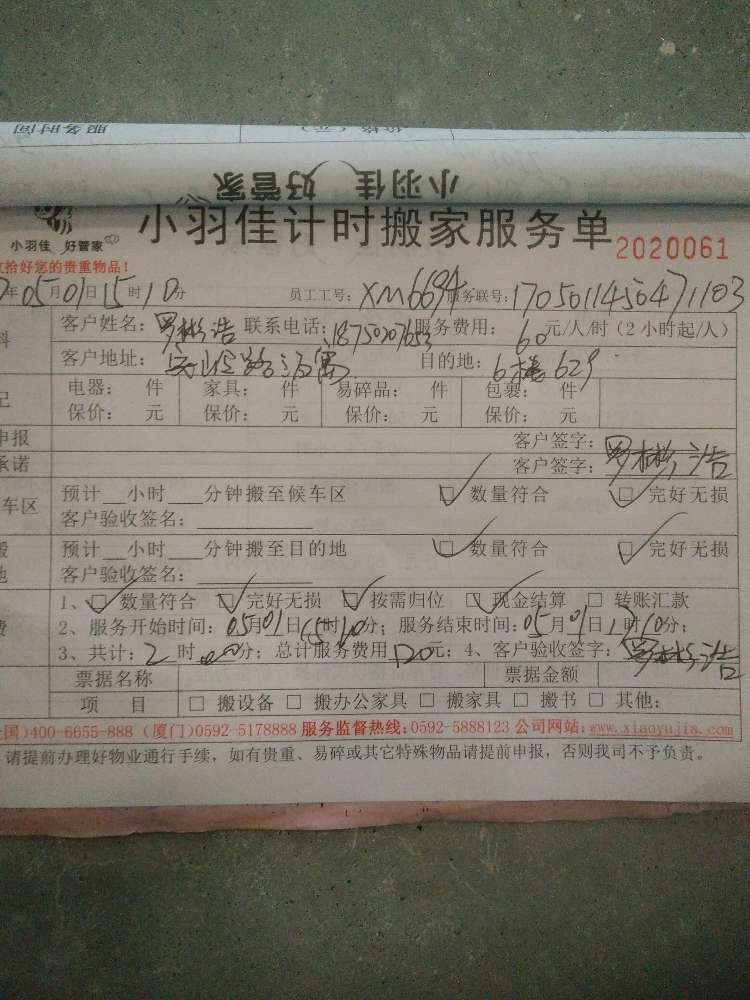 服务时间
小羽佳 好管家
小羽佳 好管家
小羽佳计时搬家服务单 2020061
拾好您的贵重物品!
年05月01日15时10分 员工工号: XM6694 服务联号: 1705011456471103
客户姓名: 罗彬浩 联系电话: 18750207653 服务费用: 60 元/人/时 (2小时起/人)
客户地址: 目的地: 6楼629
电器: 件 家具: 件 易碎品: 件 包裹: 件
保价: 元 保价: 元 保价: 元 保价: 元
申报 客户签字:
承诺 客户签字: 罗彬浩
车区 预计__小时___分钟搬至候车区 ☑ 数量符合 ☑ 完好无损
客户验收签名:
预计__小时___分钟搬至目的地 ☑ 数量符合 ☑ 完好无损
客户验收签名:
1、☑ 数量符合 ☑ 完好无损 ☑ 按需归位 ☑ 现金结算 □ 转账汇款
2、服务开始时间: 05月01日15时10分; 服务结束时间: 05月01日17时10分;
3、共计: 2 时00分; 总计服务费用120元; 4、客户验收签字: 罗彬浩
票据名称 票据金额
项 目 □ 搬设备 □ 搬办公家具 □ 搬家具 □ 搬书 □ 其他:
国)400-6655-888 (厦门)0592-5178888 服务监督热线:0592-5888123 公司网站:www.xiaoyujia.com
请提前办理好物业通行手续，如有贵重、易碎或其它特殊物品请提前申报，否则我司不予负责。